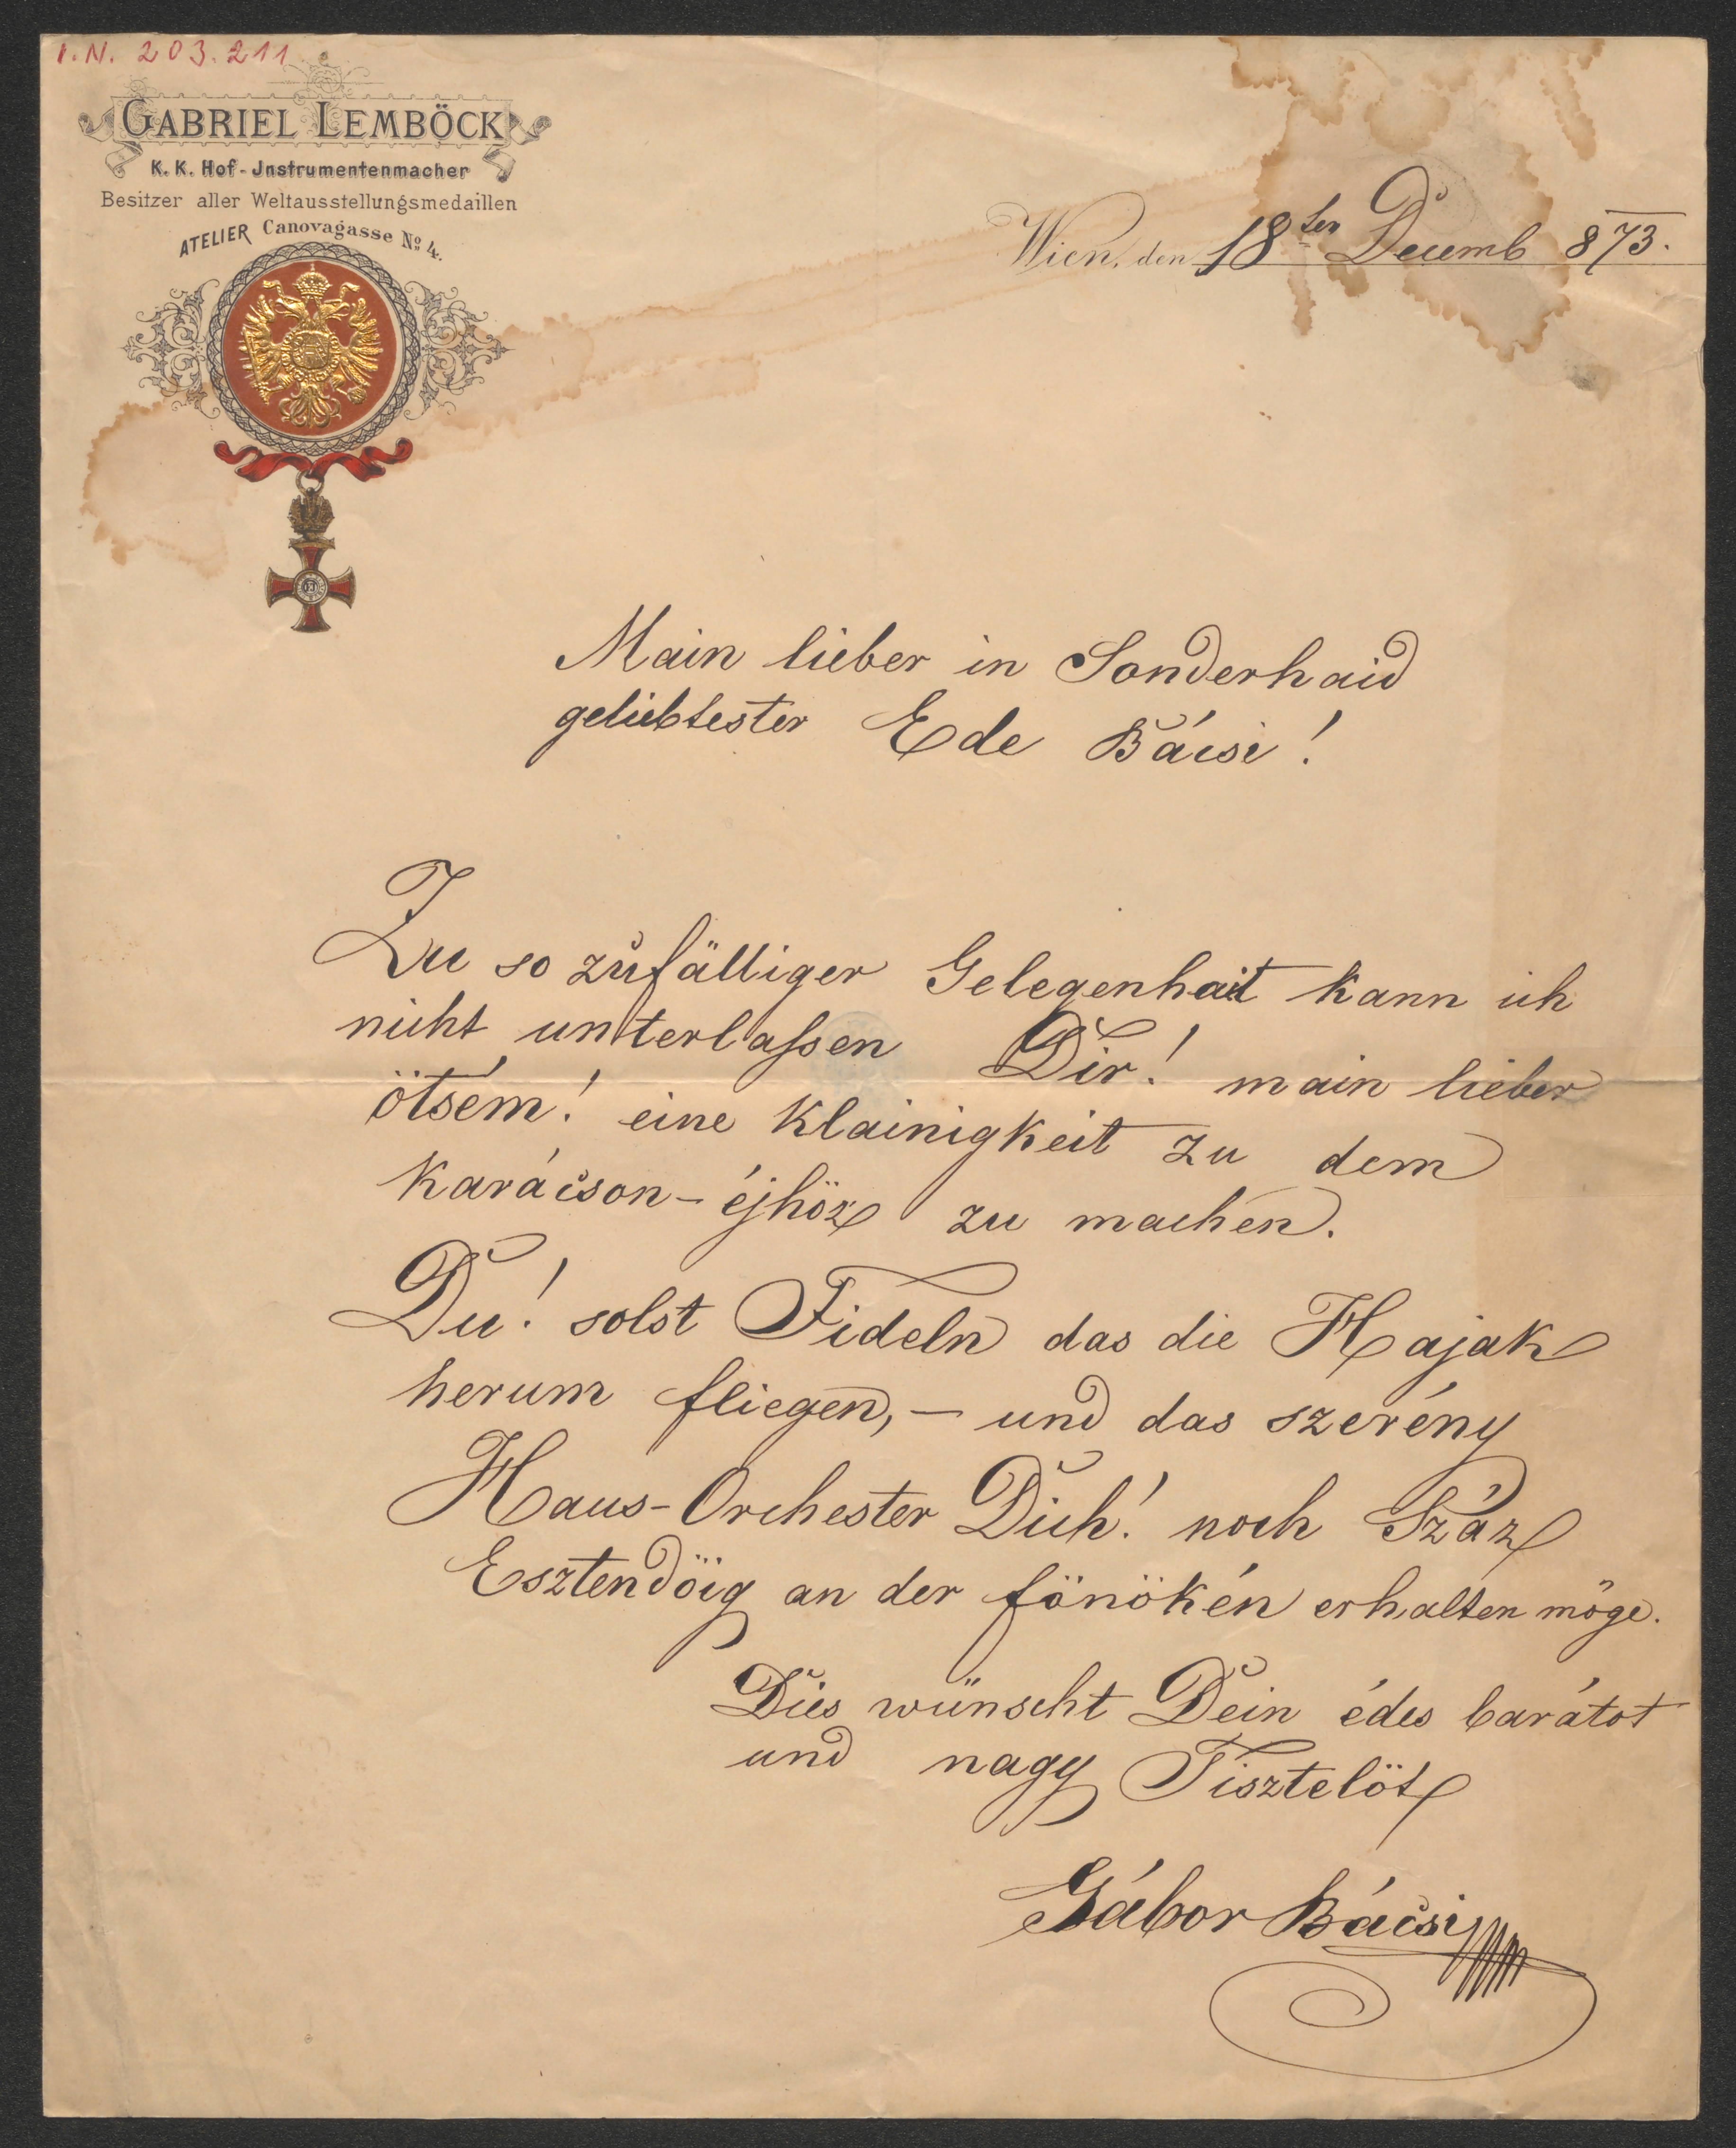 I.N. 203.211
GABRIEL LEMBÖCK
K. K. Hof-Jnstrumentenmacher
Besitzer aller Weltausstellungsmedaillen
ATELIER Canovagasse No 4.
Wien, den 18ter Decemb 873.
Main lieber in Sonderhaid
geliebtester Ede Bácsi!
Zu so zufälliger Gelegenhait kann ich
nicht unterlaßen Dir! main lieber
ötsém! eine Klainigkeit zu dem
Karácson-éjhöz zu machen.
Du! solst Fideln das die Hajak
herum fliegen, – und das szerény
Haus-Orchester Dich! noch Száz
Esztendöig an der fönökén erhalten möge.
Dies wünscht Dein édes barátot
und nagy Tisztelöt
Gábor Bácsi